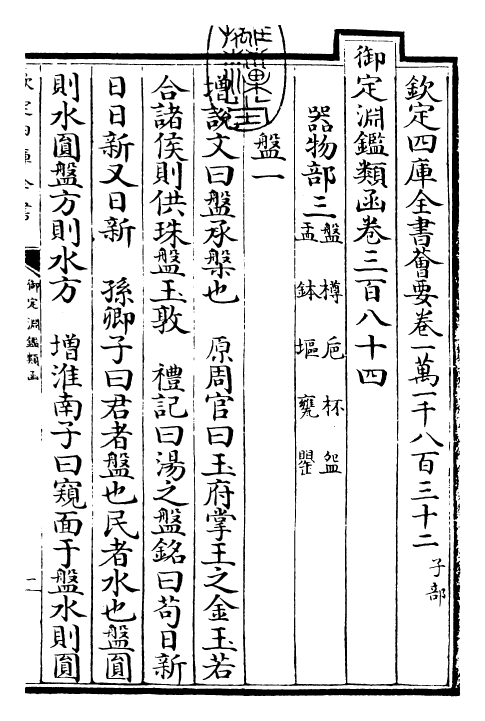 欽定四庫全書薈要卷一萬一千八百三十二 子部
御定淵鑑類函卷三百八十四
器物部三 盤 樽 卮 杯 盌
盂 鉢 堰 甕 罌
盤一
增說文曰盤承槃也 原周官曰玉府掌王之金玉若
合諸侯則供珠盤玉敦 禮記曰湯之盤銘曰苟日新
日日新又日新 孫卿子曰君者盤也民者水也盤圓
則水圓盤方則水方 增淮南子曰窺面于盤水則圓
欽定四庫全書
御定淵鑑類函